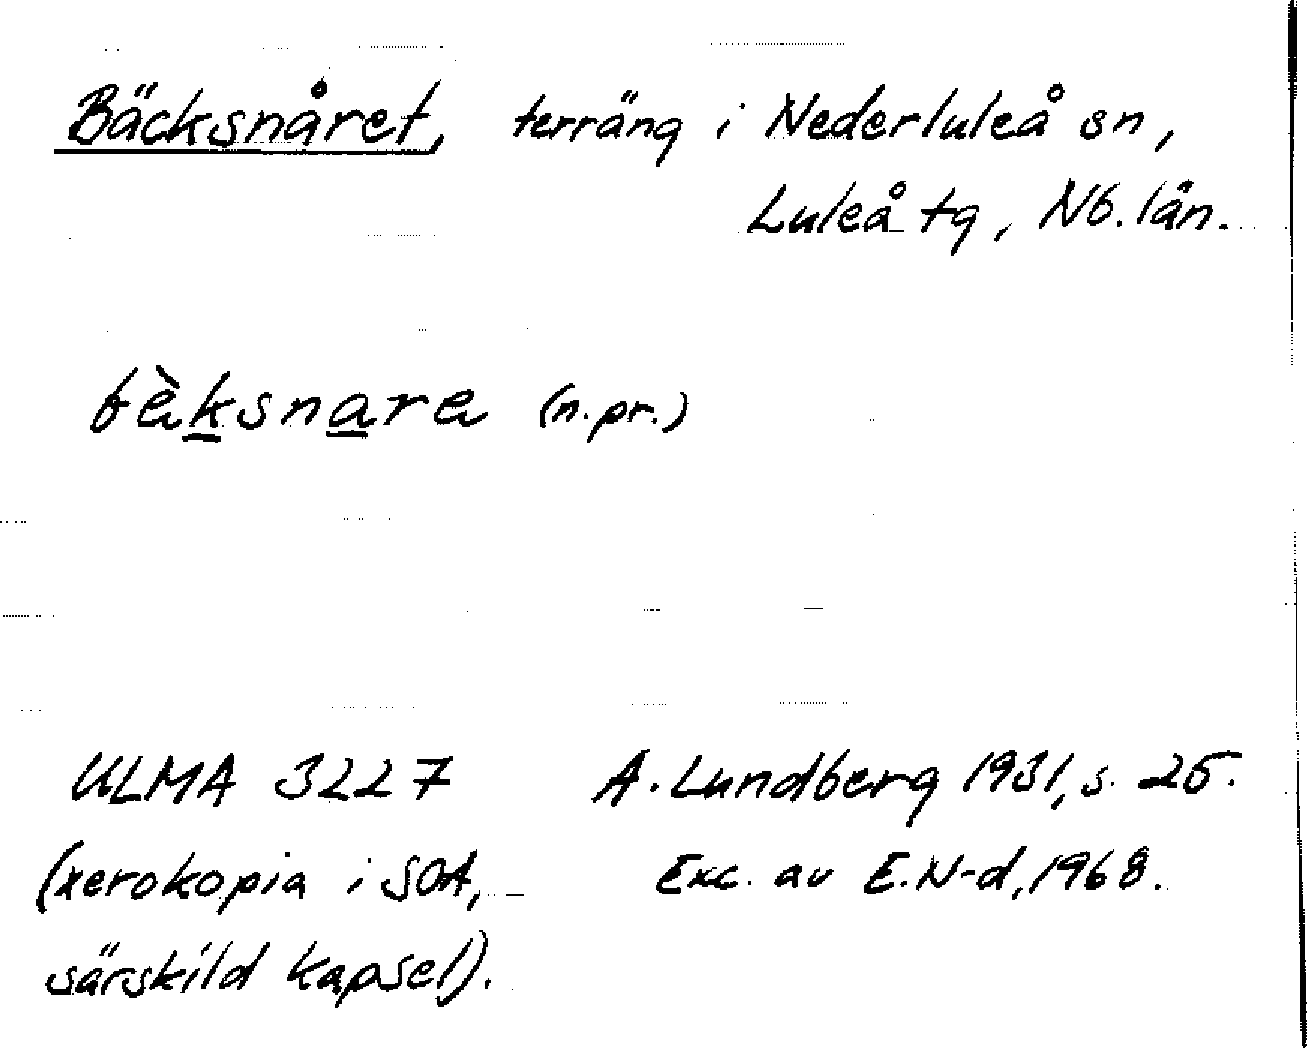 Bäcksnåret, terräng i Nederluleå sn,
Luleå tg, Nb. län.
bèksnara (n.pr.)
ULMA 3227 A. Lundberg 1931, s. 25.
(xerokopia i SOA, Exc. av E.N-d, 1968.
särskild kapsel).